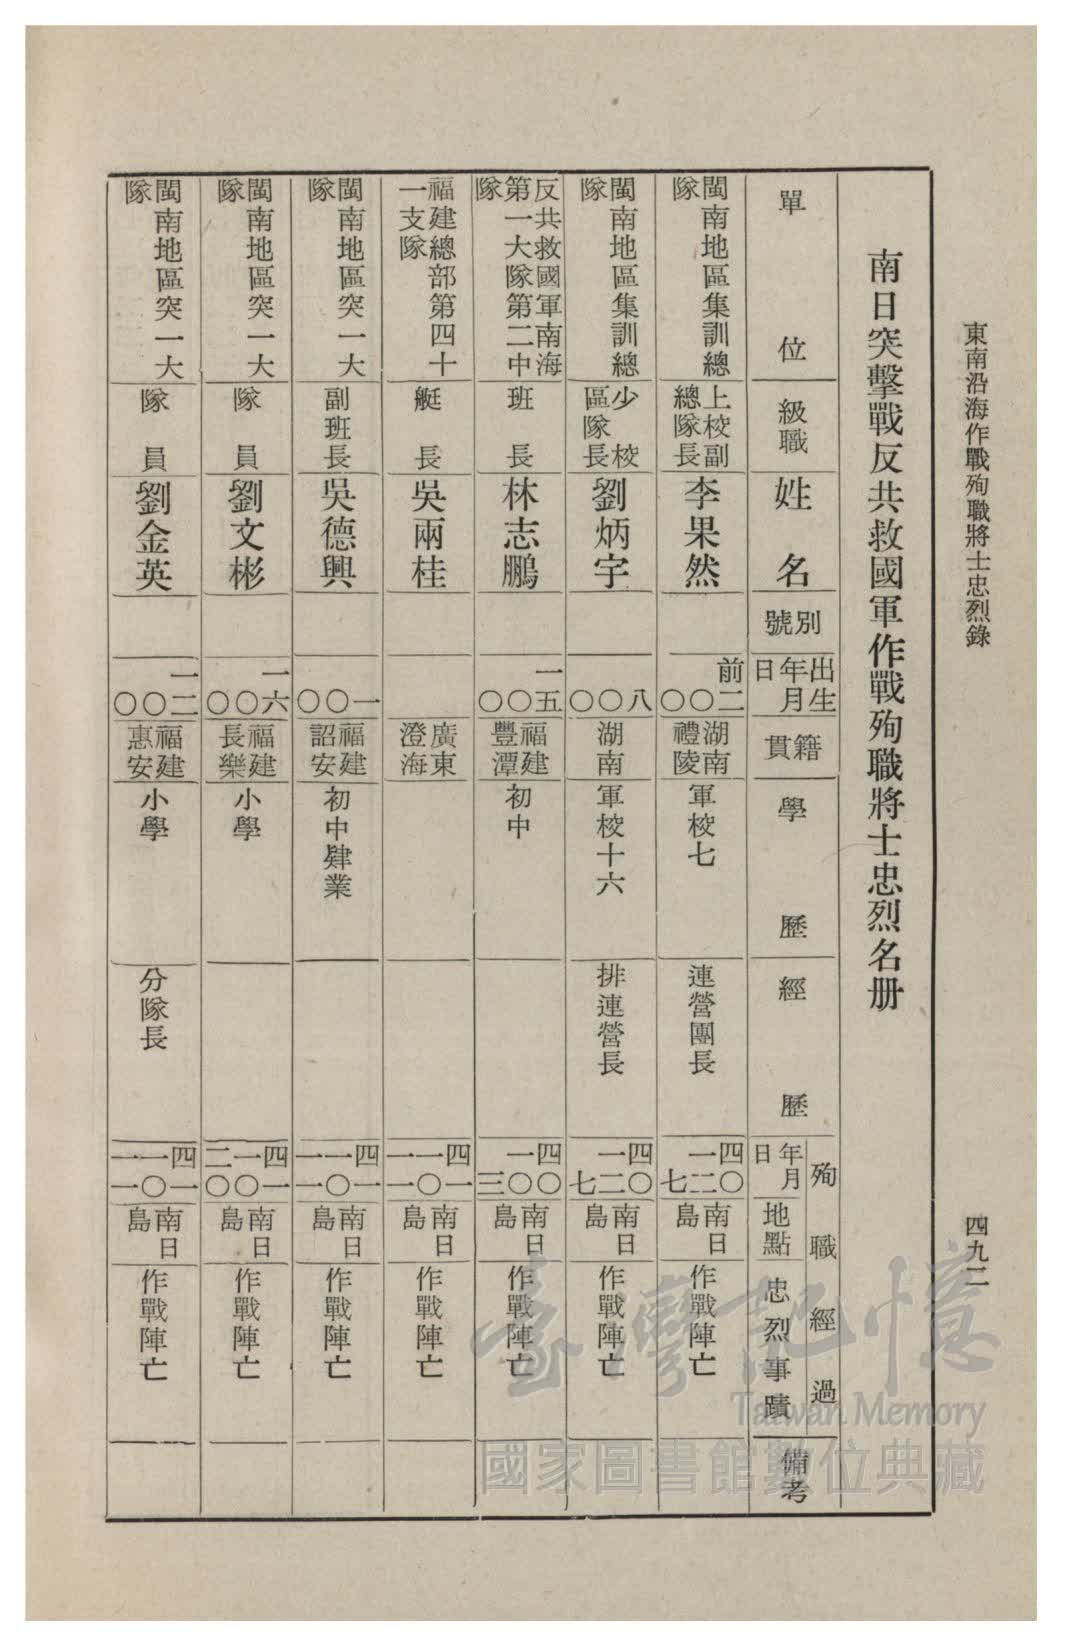 東南沿海作戰殉職將士忠烈錄
四九二
南日突擊戰反共救國軍作戰殉職將士忠烈名册
單位
級職
姓名
別號
出生
年月
日
籍貫
學歷
經歷
殉職經過
年月
日
地點
忠烈事蹟
備考
閩南地區集訓總
隊
上校副
總隊長
李果然
前二
〇
〇
湖南
禮陵
軍校七
連營團長
四〇
一二
七
南日
島
作戰陣亡
閩南地區集訓總
隊
少校
區隊長
劉炳宇
八
〇
〇
湖南
軍校十六
排連營長
四〇
一二
七
南日
島
作戰陣亡
反共救國軍南海
第一大隊第二中
隊
班長
林志鵬
一五
〇
〇
福建
豐潭
初中
四〇
一〇
三
南日
島
作戰陣亡
福建總部第四十
一支隊
艇長
吳兩桂
廣東
澄海
四一
一〇
一一
南日
島
作戰陣亡
閩南地區突一大
隊
副班長
吳德興
一
〇
〇
福建
詔安
初中肄業
四一
一〇
一一
南日
島
作戰陣亡
閩南地區突一大
隊
隊員
劉文彬
一六
〇
〇
福建
長樂
小學
四一
一〇
二〇
南日
島
作戰陣亡
閩南地區突一大
隊
隊員
劉金英
一二
〇
〇
福建
惠安
小學
分隊長
四一
一〇
一一
南日
島
作戰陣亡
臺灣記憶
Taiwan Memory
國家圖書館數位典藏